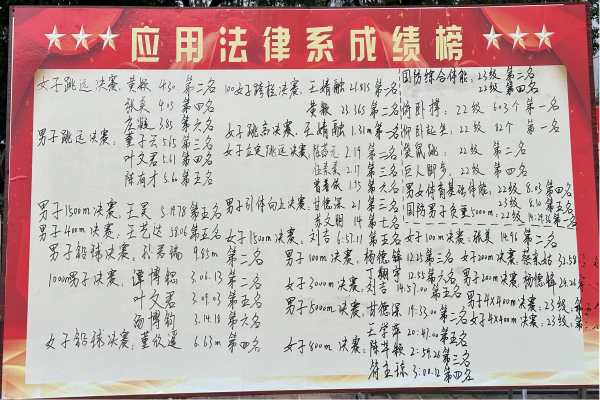 应用法律系成绩榜
女子跳远决赛:黄敏 4.30 第二名
张美 4.03 第四名
3.85 第六名
男子跳远决赛:董子云 5.65 第三名
叶文君 5.61 第四名
陈有才 5.60 第五名
男子1500m决赛:王昊 5.19.78 第五名
男子400m决赛:王艺达 58.06 第五名
男子铅球决赛: 9.83m 第二名
1000m男子决赛:谭博锶 3.06.13 第二名
叶文君 3.09.03 第五名
汤博钧 3.14.18 第六名
女子铅球决赛:董 6.63m 第四名
100女子跨栏决赛:王婧融 21.815 第一名
黄敏 23.365 第二名
女子跳高决赛:王婧融 1.31m 第一名
女子立定跳远决赛: 2.19 第二名
2.17 第三名
1.93 第六名
男子引体向上决赛:甘德深 21 第三名
苏文明 14 第七名
女子1500m决赛:刘吉 6:57.11 第五名
男子100m决赛:杨德锋 12.25 第二名
丁翔宇 12.55 第六名
女子3000m决赛:刘吉 14.57.00 第五名
男子5000m决赛:甘德深 19:33.00 第二名
王学萍 20:47.00 第五名
女子800m决赛:陈苹颖 2:59.26 第三名
符玉琼 3:00.12 第四名
国防综合体能:23级 第二名
22级 第四名
俯卧撑:22级 603个 第一名
仰卧起坐:22级 82个 第一名
袋鼠跳:22级 第二名
巨人脚步:22级 第四名
男女体育基础体能:22级 8.03 第四名
23级 8.10 第五名
国防男子负重5000m:22级:14:29.36 第一名
女子100m决赛:张美 14.96 第二名
女子200m决赛:蔡 32.58
男子200m决赛:杨德锋 24.26
男子4X400m决赛:23级:第
女子4X400m决赛:23级:第